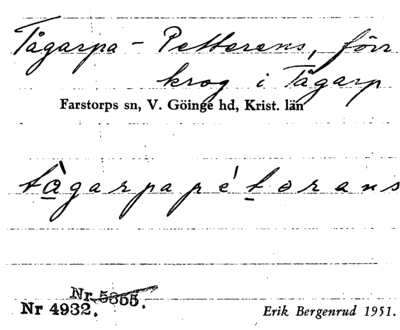 Tågarpa - Petterens, förr
krog i Tågarp
Farstorps sn, V. Göinge hd, Krist. län
tògarpapétərans
Nr. 5355.
Nr 4932.
Erik Bergenrud 1951.